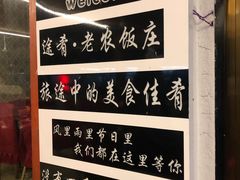 welcome
途肴·老农饭庄
旅途中的美食佳肴
风里雨里节日里
我们都在这里等你